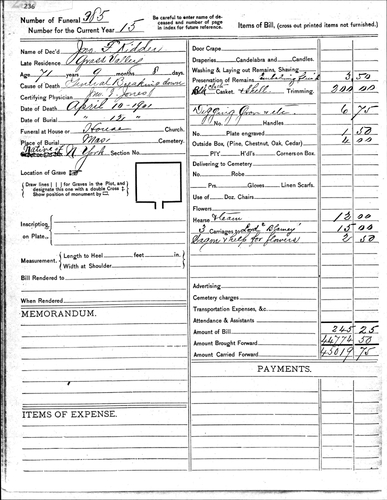 236
Number of Funeral 385
Number for the Current Year 15
Be careful to enter name of deceased and number of page in index for future reference.
Items of Bill, (cross out printed items not furnished.)
Name of Dec'd Jno. F Kidder
Late Residence Grass Valley
Age 71 years 9 months 8 days.
Cause of Death General Breaking down
Certifying Physician Jones
Date of Death April 10-1901
Date of Burial " 12 "
Funeral at House or House Church.
Place of Burial Mas
Native of N. York Section No.
Location of Grave
Draw lines | | for Graves in the Plot, and designate this one with a double Cross
Show position of monument by
Inscription on Plate
Measurement. Length to Heel feet in.
Width at Shoulder
Bill Rendered to
When Rendered
MEMORANDUM.
ITEMS OF EXPENSE.
Door Crape
Draperies Candelabras and Candles.
Washing & Laying out Remains, Shaving
Preservation of Remains Embalming Fluid 3 50
Casket & Shell Trimming. 200 00
Digging Grave & etc. 6 75
No. Handles
Plate engraved 1 50
Outside Box, (Pine, Chestnut, Oak, Cedar) 4 00
P'Y. H'dl's Corners on Box.
Delivering to Cemetery
No. Robe
Pr. Gloves Linen Scarfs.
Use of Doz. Chairs
Flowers
Hearse & team 12 00
3 Carriages to 15 00
Wagon & help for flowers 2 50
Advertising
Cemetery charges
Transportation Expenses, &c.
Attendance & Assistants
Amount of Bill 245 25
Amount Brought Forward 44774 50
Amount Carried Forward 45019 75
PAYMENTS.